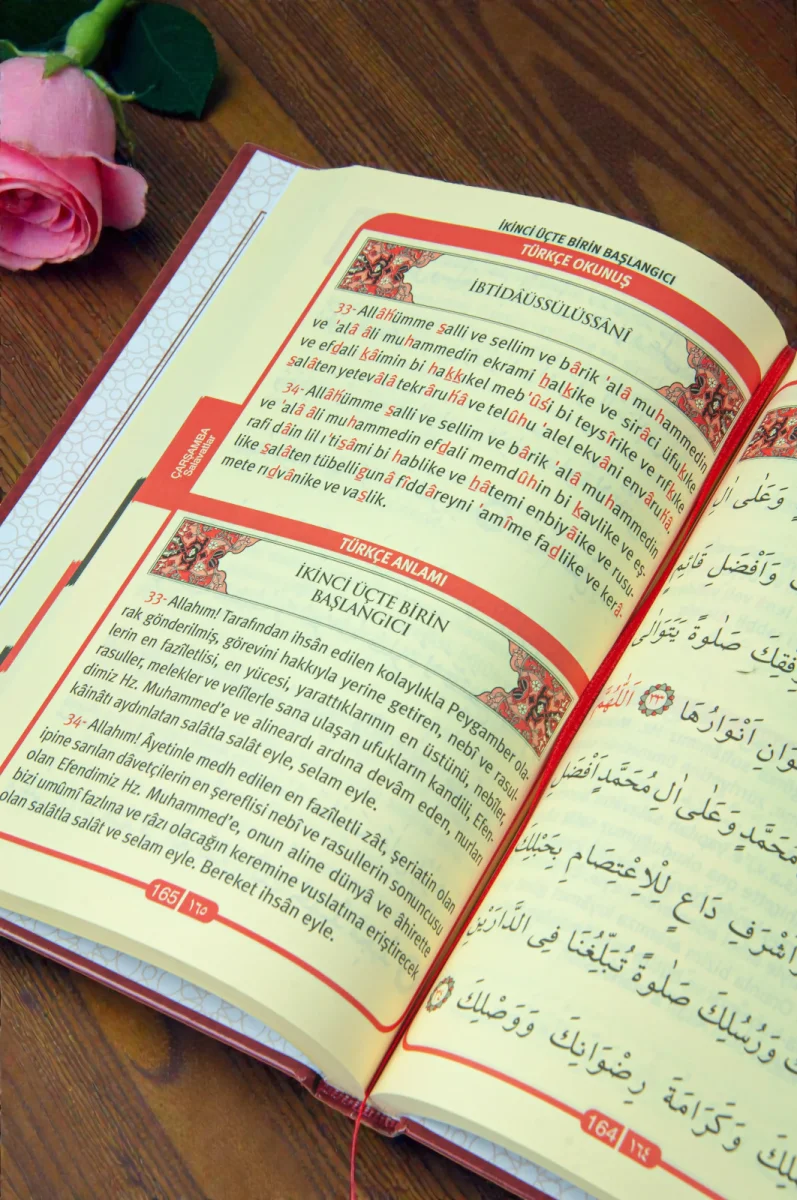 İKİNCİ ÜÇTE BİRİN BAŞLANGICI
TÜRKÇE OKUNUŞ
İBTİDÂÜSSÜLÜSSÂNÎ
33- Allâhümme salli ve sellim ve bârik 'alâ muhammedin
ve 'alâ âli muhammedin ekrami halkike ve sirâci üfukike
ve efdali kâimin bi hakkıkel meb'ûsi bi teysîrike ve rıfkıke
salâten yetevâlâ tekrâruhâ ve telûhu 'alel ekvâni envâruhâ.
34- Allâhümme salli ve sellim ve bârik 'alâ muhammedin
ve 'alâ âli muhammedin efdali memdûhin bi kavlike ve eş-
rafi dâin lil ı'tisâmi bi hablike ve hâtemi enbiyâike ve rusu-
like salâten tübelligunâ fiddâreyni 'amîme fadlike ve kerâ-
mete rıdvânike ve vaslik.
ÇARŞAMBA
Salavatlar
TÜRKÇE ANLAMI
İKİNCİ ÜÇTE BİRİN
BAŞLANGICI
33- Allahım! Tarafından ihsân edilen kolaylıkla Peygamber ola-
rak gönderilmiş, görevini hakkıyla yerine getiren, nebî ve rasul-
lerin en fazîletlisi, en yücesi, yarattıklarının en üstünü, nebîler,
rasuller, melekler ve velîlerle sana ulaşan ufukların kandili, Efen-
dimiz Hz. Muhammed'e ve alineardı ardına devâm eden, nurları
kâinâtı aydınlatan salâtla salât eyle, selam eyle.
34- Allahım! Âyetinle medh edilen en fazîletli zât, şeriatin olan
ipine sarılan dâvetçilerin en şereflisi nebî ve rasullerin sonuncusu
olan Efendimiz Hz. Muhammed'e, onun aline dünyâ ve âhirette
bizi umûmî fazlına ve râzı olacağın keremine vuslatına eriştirecek
olan salâtla salât ve selam eyle. Bereket ihsân eyle.
165 ١٦٥
وَعَلٰى اٰلِ
وَاَفْضَلِ قَائِمٍ
صَلٰوةً يَتَوَالٰى
اَنْوَارُهَا ٣٣ اَللّٰهُمَّ
مُحَمَّدٍ وَعَلٰى اٰلِ مُحَمَّدٍ اَفْضَلِ
دَاعٍ لِلْاِعْتِصَامِ بِحَبْلِكَ
وَرُسُلِكَ صَلٰوةً تُبَلِّغُنَا فِى الدَّارَيْنِ
وَكَرَامَةَ رِضْوَانِكَ وَوَصْلِكَ
164 ١٦٤